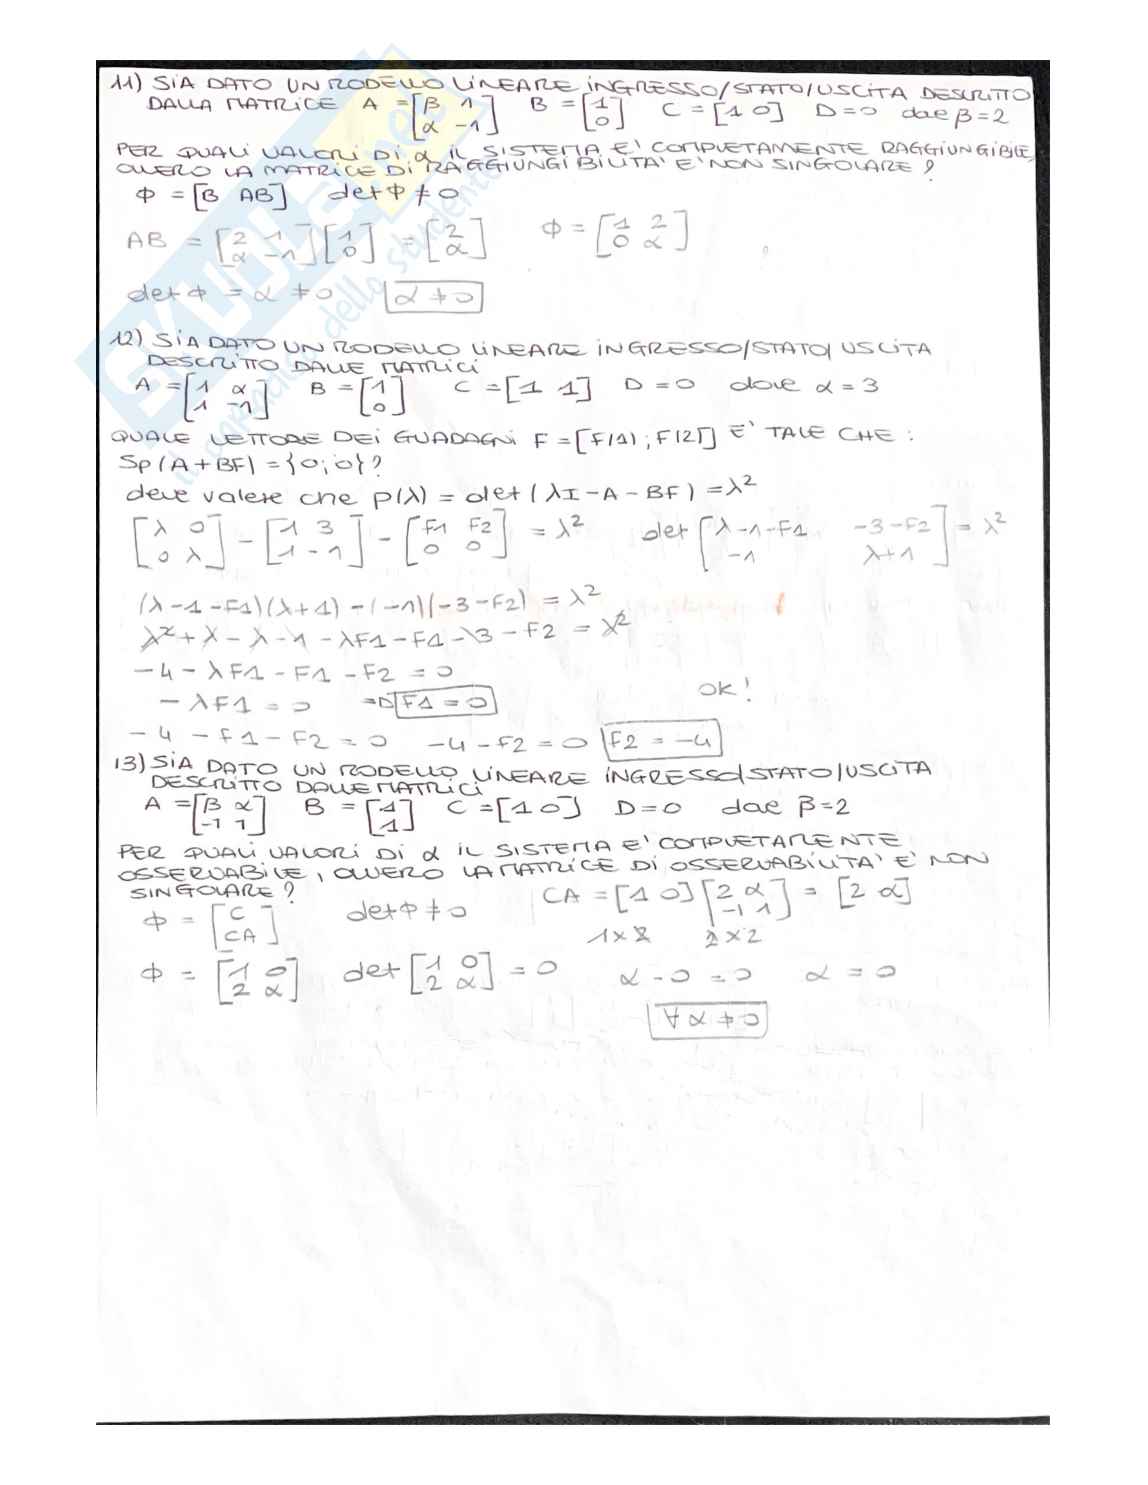 11) SIA DATO UN MODELLO LINEARE INGRESSO/STATO/USCITA DESCRITTO
DALLA MATRICE A = [β 1; α -1] B = [1; 0] C = [1 0] D = 0 dove β = 2
PER QUALI VALORI DI α IL SISTEMA E' COMPLETAMENTE RAGGIUNGIBILE,
OVVERO LA MATRICE DI RAGGIUNGIBILITA' E' NON SINGOLARE?
Φ = [B AB] det Φ ≠ 0
AB = [2 1; α -1] [1; 0] = [2; α] Φ = [1 2; 0 α]
det Φ = α ≠ 0 α ≠ 0
12) SIA DATO UN MODELLO LINEARE INGRESSO/STATO/USCITA
DESCRITTO DALLE MATRICI
A = [1 α; 1 -1] B = [1; 0] C = [1 1] D = 0 dove α = 3
QUALE VETTORE DEI GUADAGNI F = [F(1); F(2)] E' TALE CHE:
Sp(A+BF) = {0;0}?
deve valere che p(λ) = det(λI - A - BF) = λ²
[λ 0; 0 λ] - [1 3; 1 -1] - [F1 F2; 0 0] = λ² det [λ-1-F1 -3-F2; -1 λ+1] = λ²
(λ-1-F1)(λ+1) - (-1)(-3-F2) = λ²
λ² + λ - λ - 1 - λF1 - F1 - 3 - F2 = λ²
-4 - λF1 - F1 - F2 = 0
OK!
-λF1 = 0 => F1 = 0
-4 - F1 - F2 = 0 -4 - F2 = 0 F2 = -4
13) SIA DATO UN MODELLO LINEARE INGRESSO/STATO/USCITA
DESCRITTO DALLE MATRICI
A = [β α; -1 1] B = [1; 1] C = [1 0] D = 0 dove β = 2
PER QUALI VALORI DI α IL SISTEMA E' COMPLETAMENTE
OSSERVABILE, OVVERO LA MATRICE DI OSSERVABILITA' E' NON
SINGOLARE?
CA = [1 0] [2 α; -1 1] = [2 α]
Φ = [C; CA] det Φ ≠ 0
1x2 2x2
Φ = [1 0; 2 α] det [1 0; 2 α] = 0 α - 0 = 0 α = 0
∀ α ≠ 0